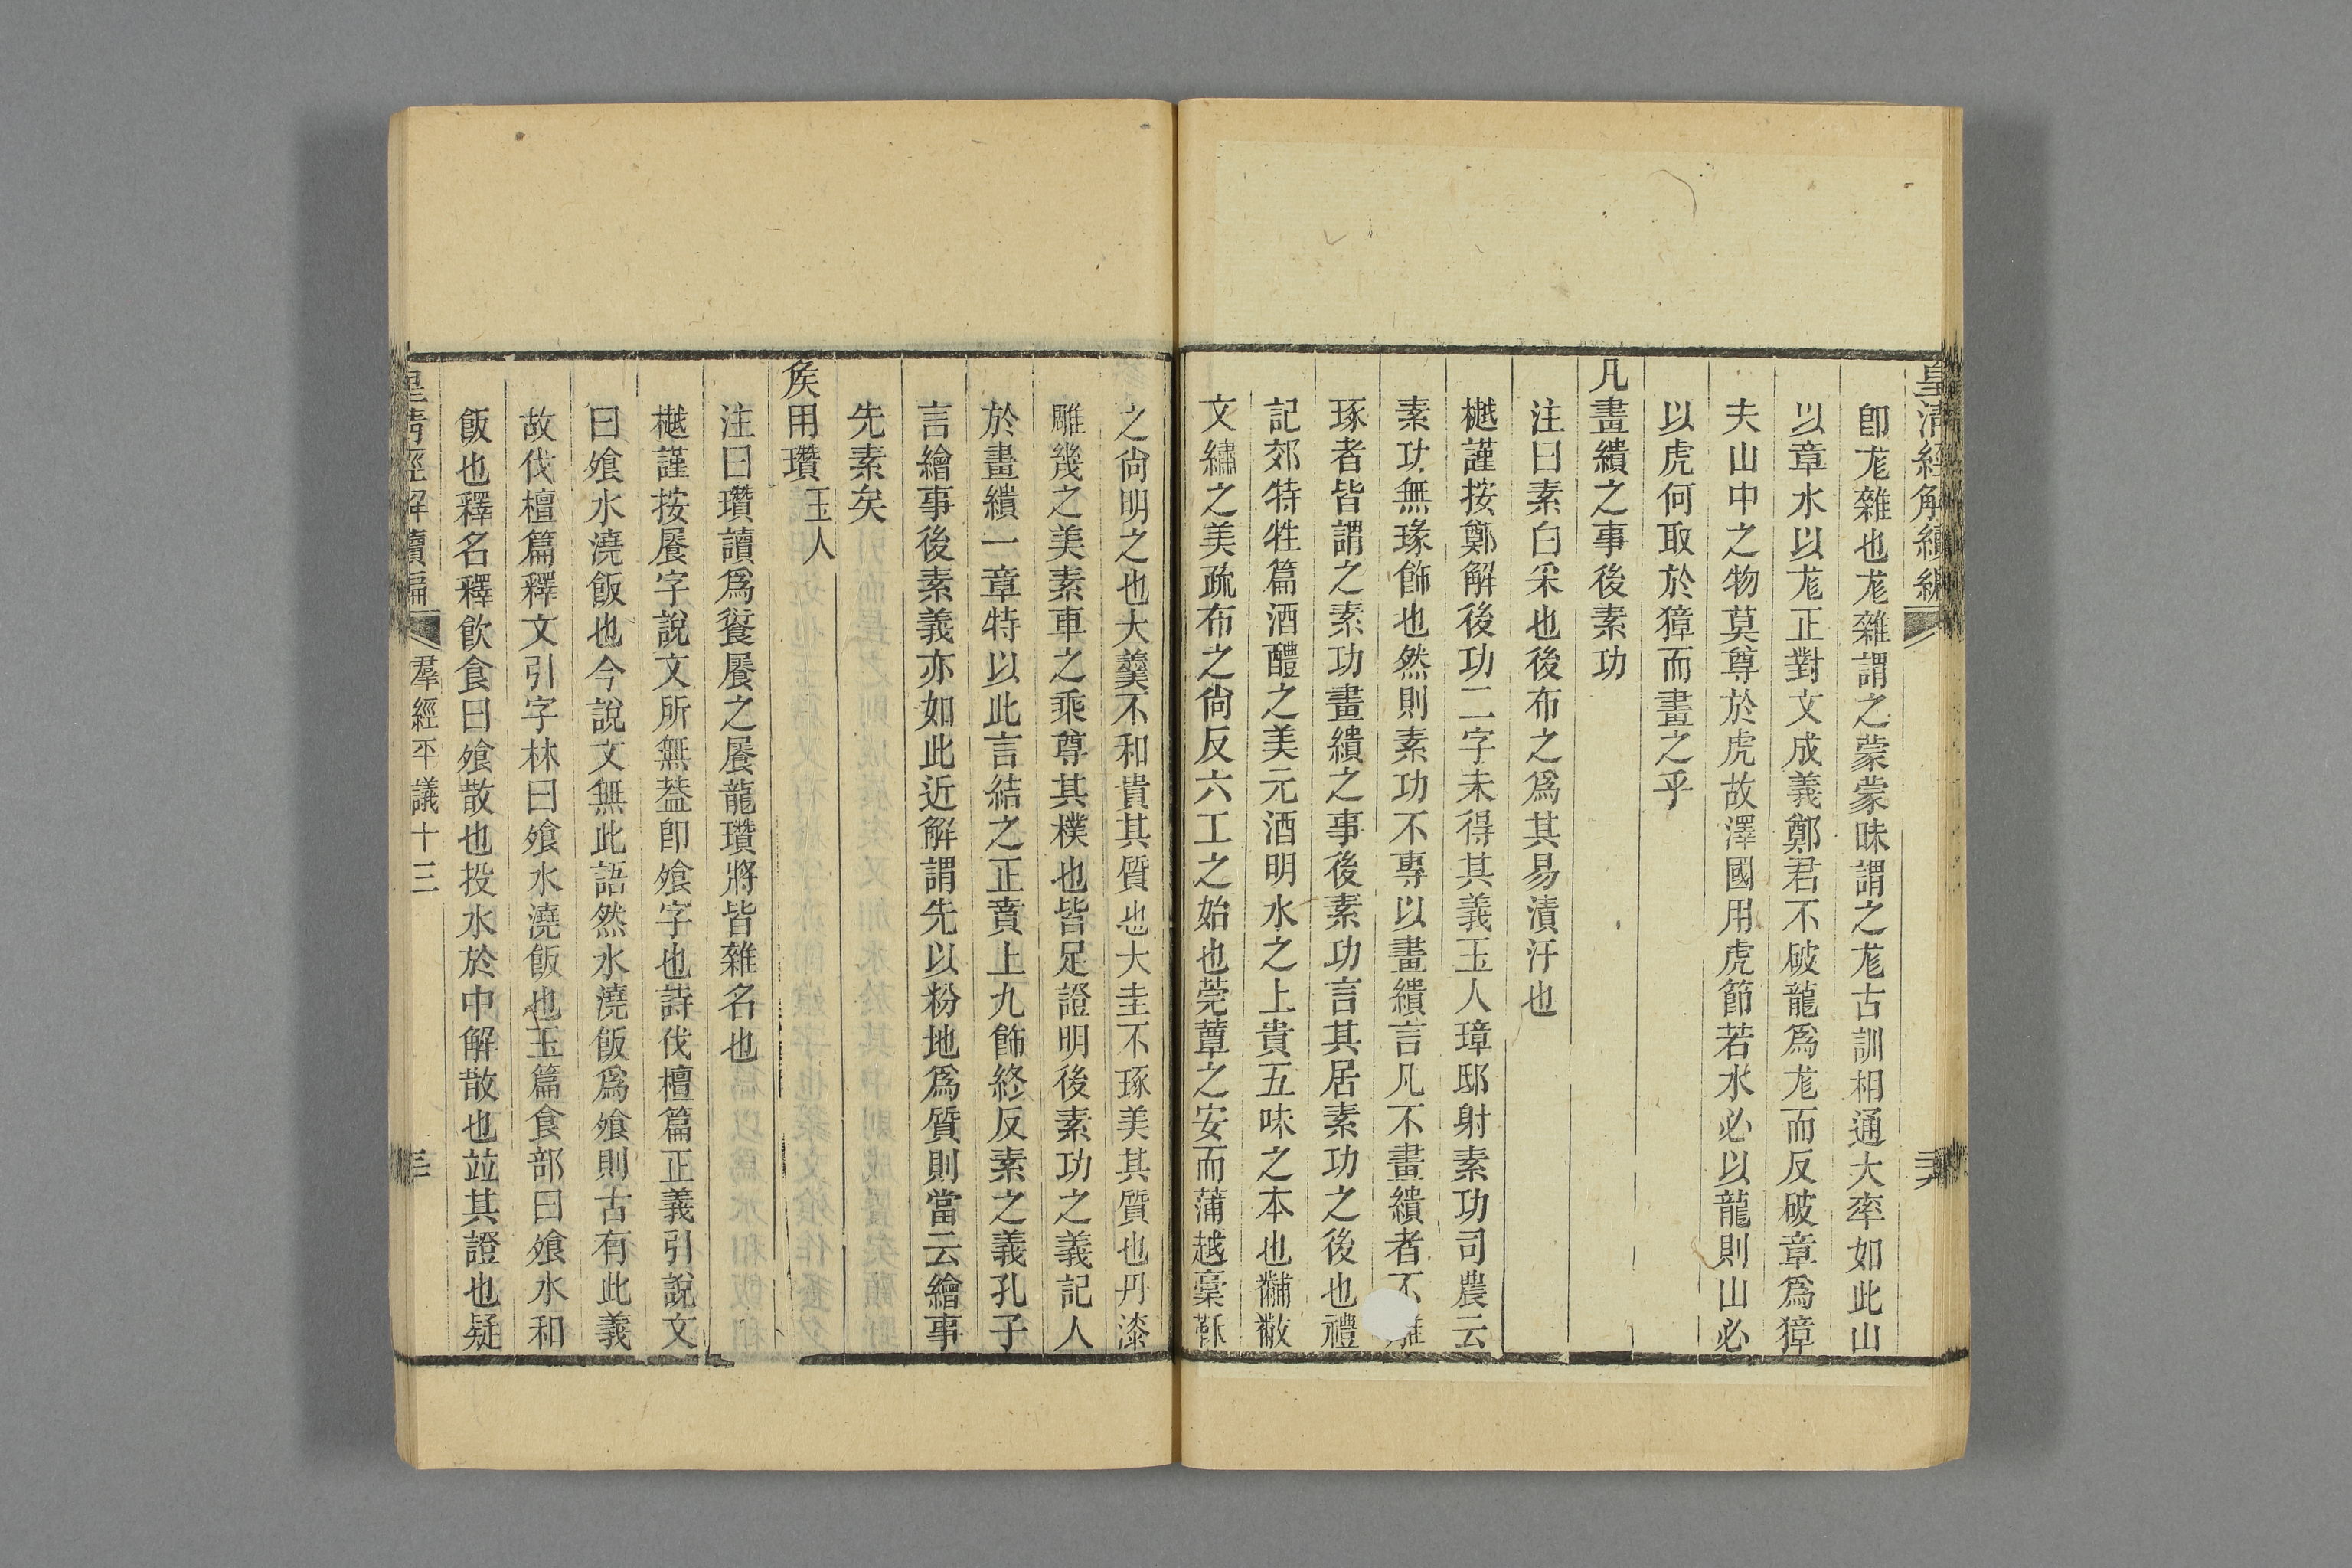 皇清經解續編
卽尨雜也尨雜謂之蒙蒙昧謂之尨古訓相通大率如此山
以章水以尨正對文成義鄭君不破龍爲尨而反破章爲獐
夫山中之物莫尊於虎故澤國用虎節若水必以龍則山必
以虎何取於獐而畫之乎
凡畫繢之事後素功
注曰素白采也後布之爲其易漬汙也
樾謹按鄭解後功二字未得其義玉人璋邸射素功司農云
素功無瑑飾也然則素功不專以畫繢言凡不畫繢者不雕
琢者皆謂之素功畫繢之事後素功言其居素功之後也禮
記郊特牲篇酒醴之美元酒明水之上貴五味之本也黼黻
文繡之美疏布之尙反六工之始也莞蕈之安而蒲越稾鞂
之尙明之也大羹不和貴其質也大圭不琢美其質也丹漆
雕幾之美素車之乘尊其樸也皆足證明後素功之義記人
於畫繢一章特以此言結之正賁上九飾終反素之義孔子
言繪事後素義亦如此近解謂先以粉地爲質則當云繪事
先素矣
矦用瓚玉人
注曰瓚讀爲餐𩞙之𩞙龍瓚將皆雜名也
樾謹按𩞙字說文所無葢卽飧字也詩伐檀篇正義引說文
曰飧水澆飯也今說文無此語然水澆飯爲飧則古有此義
故伐檀篇釋文引字林曰飧水澆飯也玉篇食部曰飧水和
飯也釋名釋飮食曰飧散也投水於中解散也竝其證也疑
皇淸經解續編
羣經平議十三